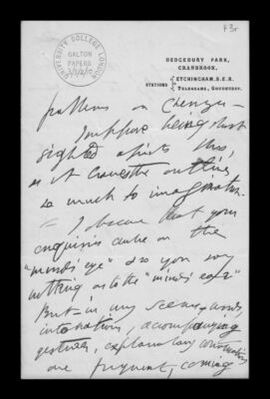 73r
UNIVERSITY COLLEGE LONDON
GALTON
PAPERS
BEDGEBURY PARK,
CRANBROOK,
STATIONS ETCHINGHAM. S.E.R.
TELEGRAMS, GOUDHURST.
patterns on
I suppose being short
sighted assists this,
as it leaves the outlines
so much to imagination.
— I observe that your
enquiries are on the
"mind's eye" do you say
nothing as to the "mind's ear"
But in my scenes, words,
intonations, accompanying
gestures, explanatory
are frequent, coming